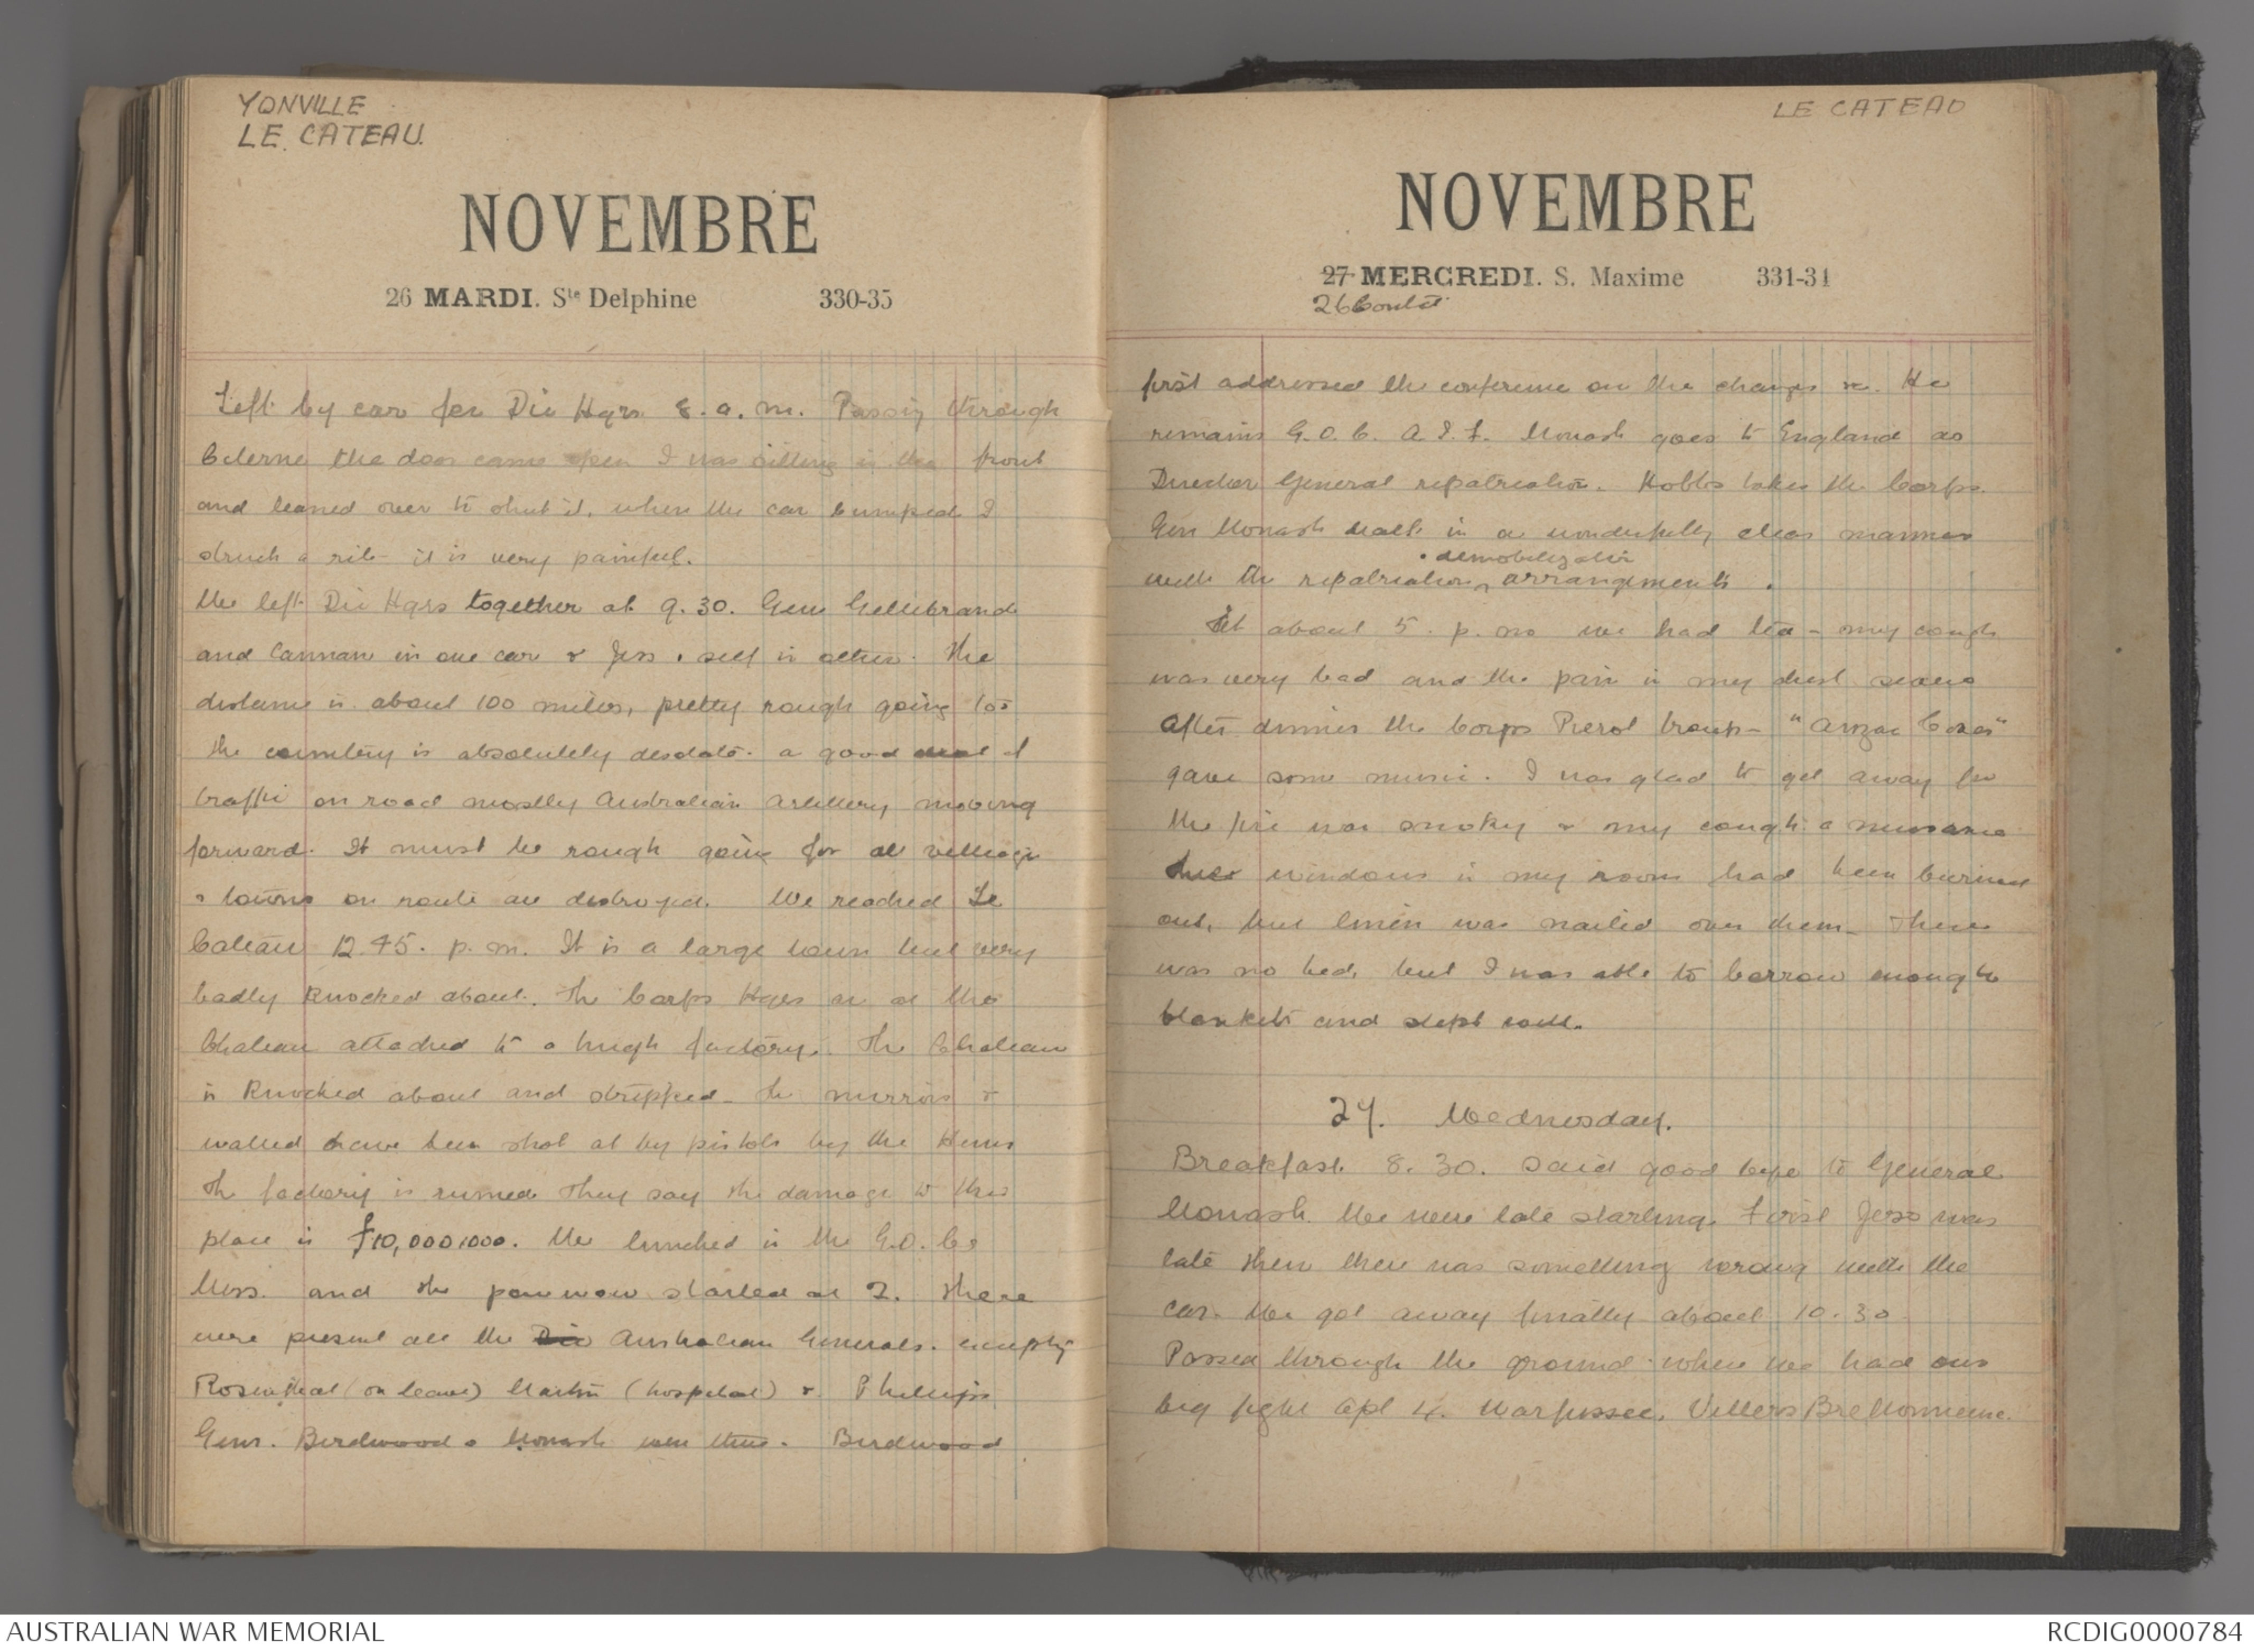 YONVILLE
LE CATEAU.
NOVEMBRE
26 MARDI. Ste Delphine 330-35
Left by car for Div Hqrs. 8. a. m. Passing through
the door came open I was sitting in the front
and leaned over to shut it, when the car bumped I
struck a rib it is very painful.
We left Div Hqrs together at 9.30. Gen Gellibrand
and Cannan in one car & Jess & self in other. The
distance is about 100 miles, pretty rough going too
the country is absolutely desolate. a good deal of
traffic on road mostly Australian Artillery moving
forward. It must be rough going for all villages
& towns on route are destroyed. We reached Le
Cateau 12.45. p. m. It is a large town but very
badly knocked about. The Corps Hqrs are at the
Chateau attached to a hugh factory. The Chateau
is knocked about and stripped - the mirrors &
walled have been shot at by pistols by the Huns
The factory is ruined They say the damage to this
place is £10,000,000. We lunched in the G.O.Cs
Mess. and the pow wow started at 2. There
were present all the Div Australian Generals. excepting
Rosenthal (on leave) Martin (hospital) & Phillips
Genr. Birdwood & Monash were there. Birdwood
LE CATEAU
NOVEMBRE
27 MERCREDI. S. Maxime 331-34
26 Contd
first addressed the conference on the changes &c. He
remains G.O.C. A.I.F. Monash goes to England as
Director General repatriation. Hobbs takes the Corps.
Gen Monash dealt in a wonderfully clear manner
& demobilization
with the repatriation ^ arrangements.
At about 5. p. m we had tea - my cough
was very bad and the pain in my chest severe
After dinner the Corps Pierot troup - "Anzac Coves"
gave some music. I was glad to get away for
the fire was smoky & my cough a nuisance
windows in my room had been burned
out, but linen was nailed over them. There
was no bed, but I was able to borrow enough
blankets and slept well.
27. Wednesday.
Breakfast 8.30. Said good bye to General
Monash. We were late starting. First Jess was
late then there was something wrong with the
car. We got away finally about 10.30
Passed through the ground where we had our
big fight Apl 4. Warfussee, Villers Bretonnieux.
AUSTRALIAN WAR MEMORIAL
RCDIG0000784